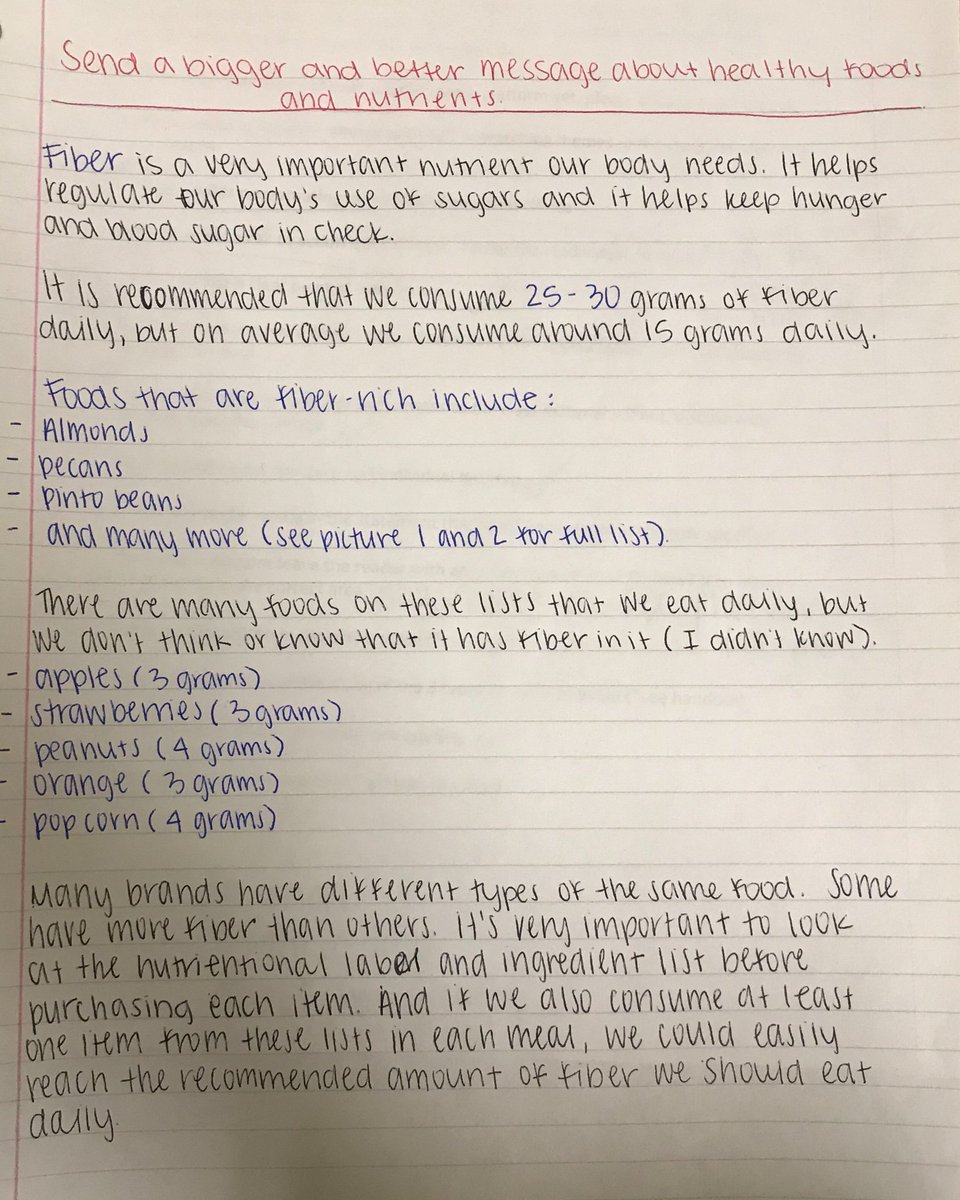 Send a bigger and better message about healthy foods
and nutrients.
Fiber is a very important nutrient our body needs. It helps
regulate our body's use of sugars and it helps keep hunger
and blood sugar in check.
It is recommended that we consume 25-30 grams of fiber
daily, but on average we consume around 15 grams daily.
Foods that are fiber-rich include:
- Almonds
- pecans
- pinto beans
- and many more (see picture 1 and 2 for full list).
There are many foods on these lists that we eat daily, but
we don't think or know that it has fiber in it (I didn't know).
- apples (3 grams)
- strawberries (3 grams)
- peanuts (4 grams)
- orange (3 grams)
- popcorn (4 grams)
Many brands have different types of the same food. Some
have more fiber than others. It's very important to look
at the nutrientional label and ingredient list before
purchasing each item. And if we also consume at least
one item from these lists in each meal, we could easily
reach the recommended amount of fiber we should eat
daily.